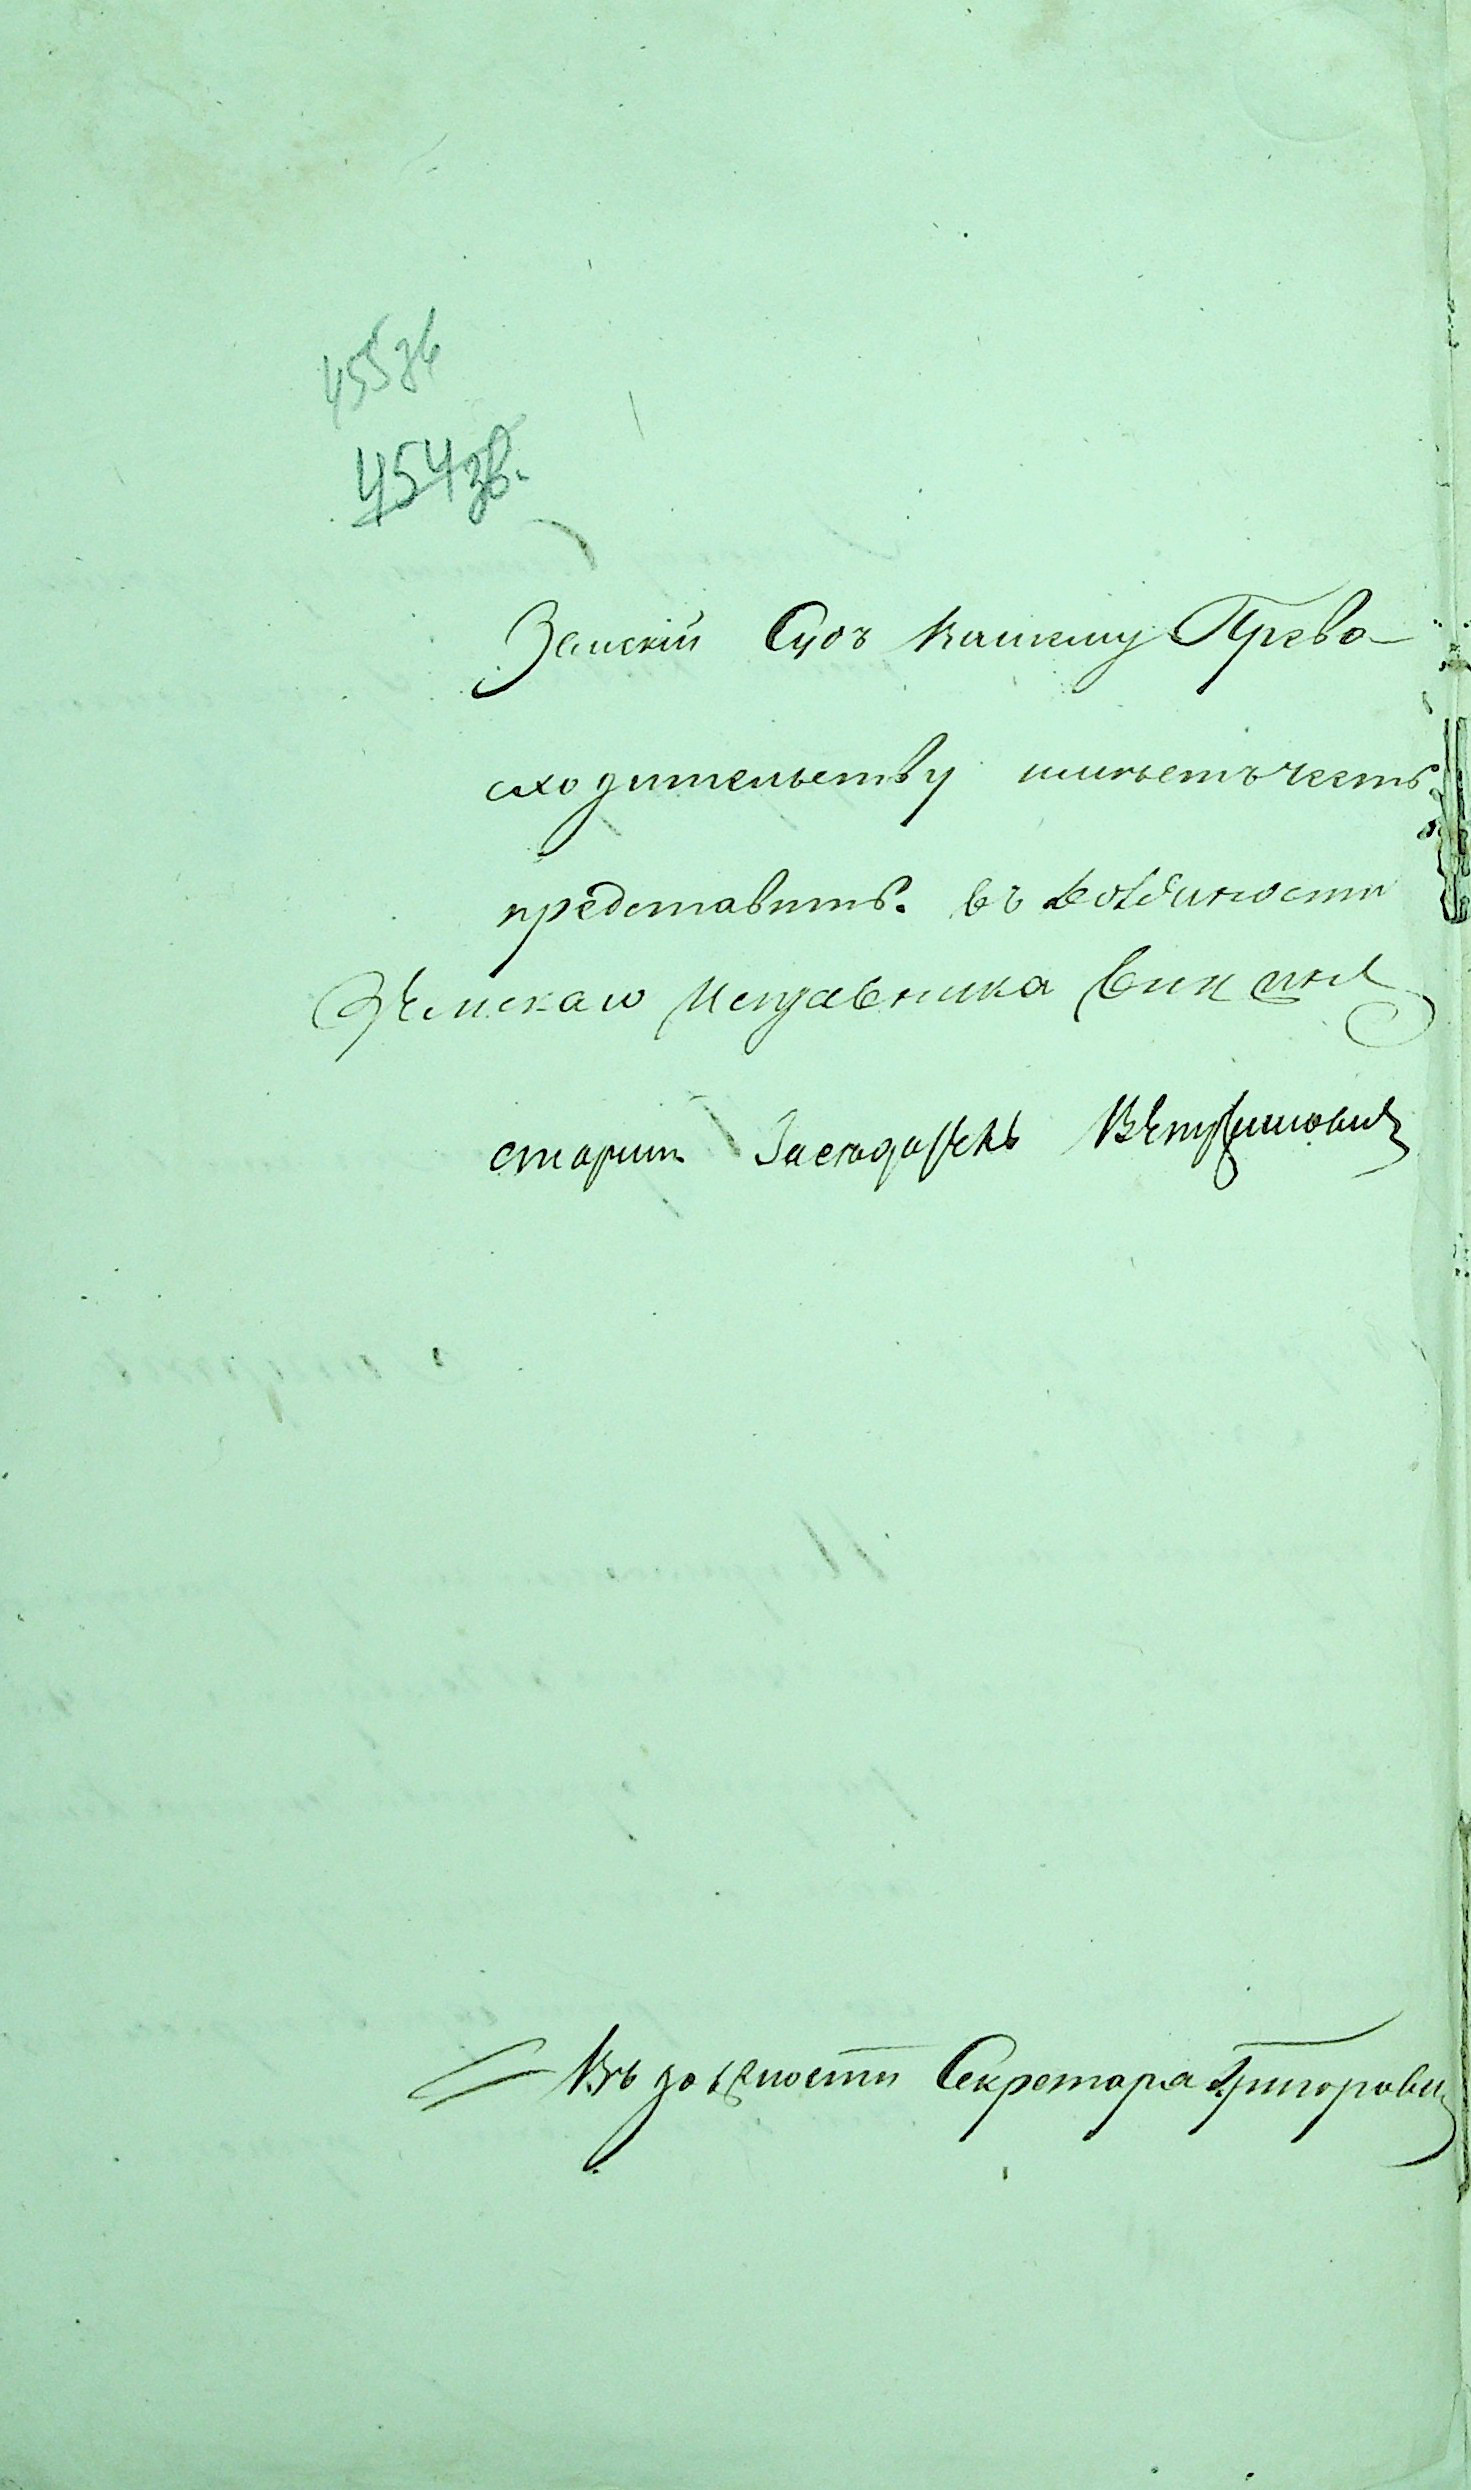 455зв
454зв.
Земскій Судъ Вашему Прево-
сходительству имѣетъ честь
представить. въ должности
Земскаго Исправника
старш. Засѣдатель
Въ должности Секретаря Григорович